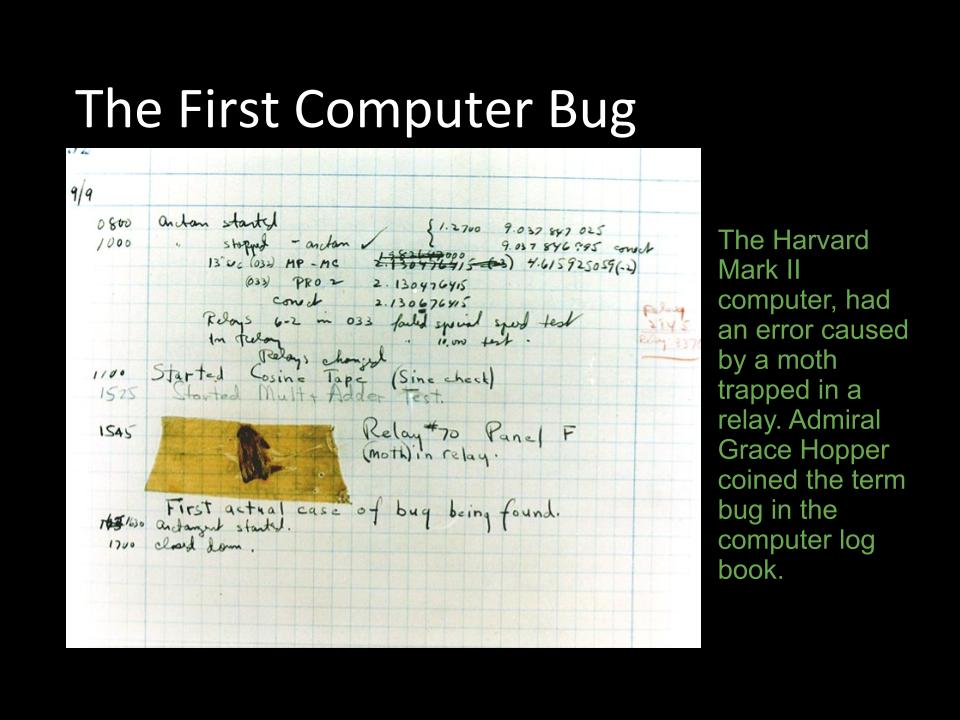 The First Computer Bug
9/9
0800 Antan started
1000 " stopped - antan ✓ { 1.2700 9.037 847 025
9.037 846 995 conect
13"uc (032) MP - MC 2.130476415 (-3) 4.615925059(-2)
(033) PRO 2 2.130476415
conect 2.130676415
Relays 6-2 in 033 failed special speed test
In Relay " 10,000 test .
Relay
2145
Relay 3370
Relays changed
1100 Started Cosine Tape (Sine check)
1525 Started Mult + Adder Test.
1545 Relay #70 Panel F
(Moth) in relay.
First actual case of bug being found.
1630 Antangent started.
1700 closed down.
The Harvard
Mark II
computer, had
an error caused
by a moth
trapped in a
relay. Admiral
Grace Hopper
coined the term
bug in the
computer log
book.